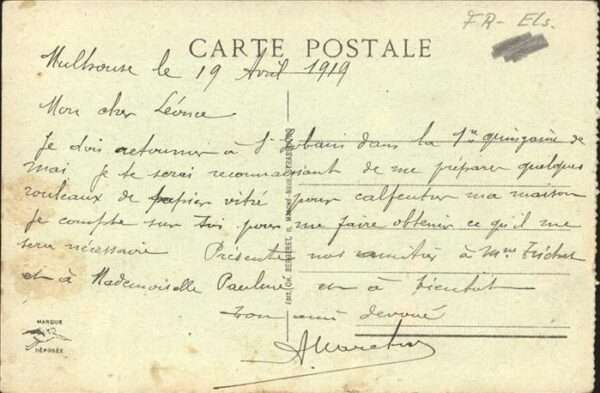 FR - Els.
CARTE POSTALE
Mulhouse le 19 Avril 1919
Mon cher Léonce
Je dois retourner à St Gobain dans la 1re quinzaine de
mai. Je te serai reconnaissant de me préparer quelques
rouleaux de papier vitré pour calfeutrer ma maison
Je compte sur toi pour me faire obtenir ce qu'il me
sera nécessaire Présente nos amitiés à Mme
et à Mademoiselle Pauline et à bientôt
Ton ami dévoué
MARQUE
DÉPOSÉE